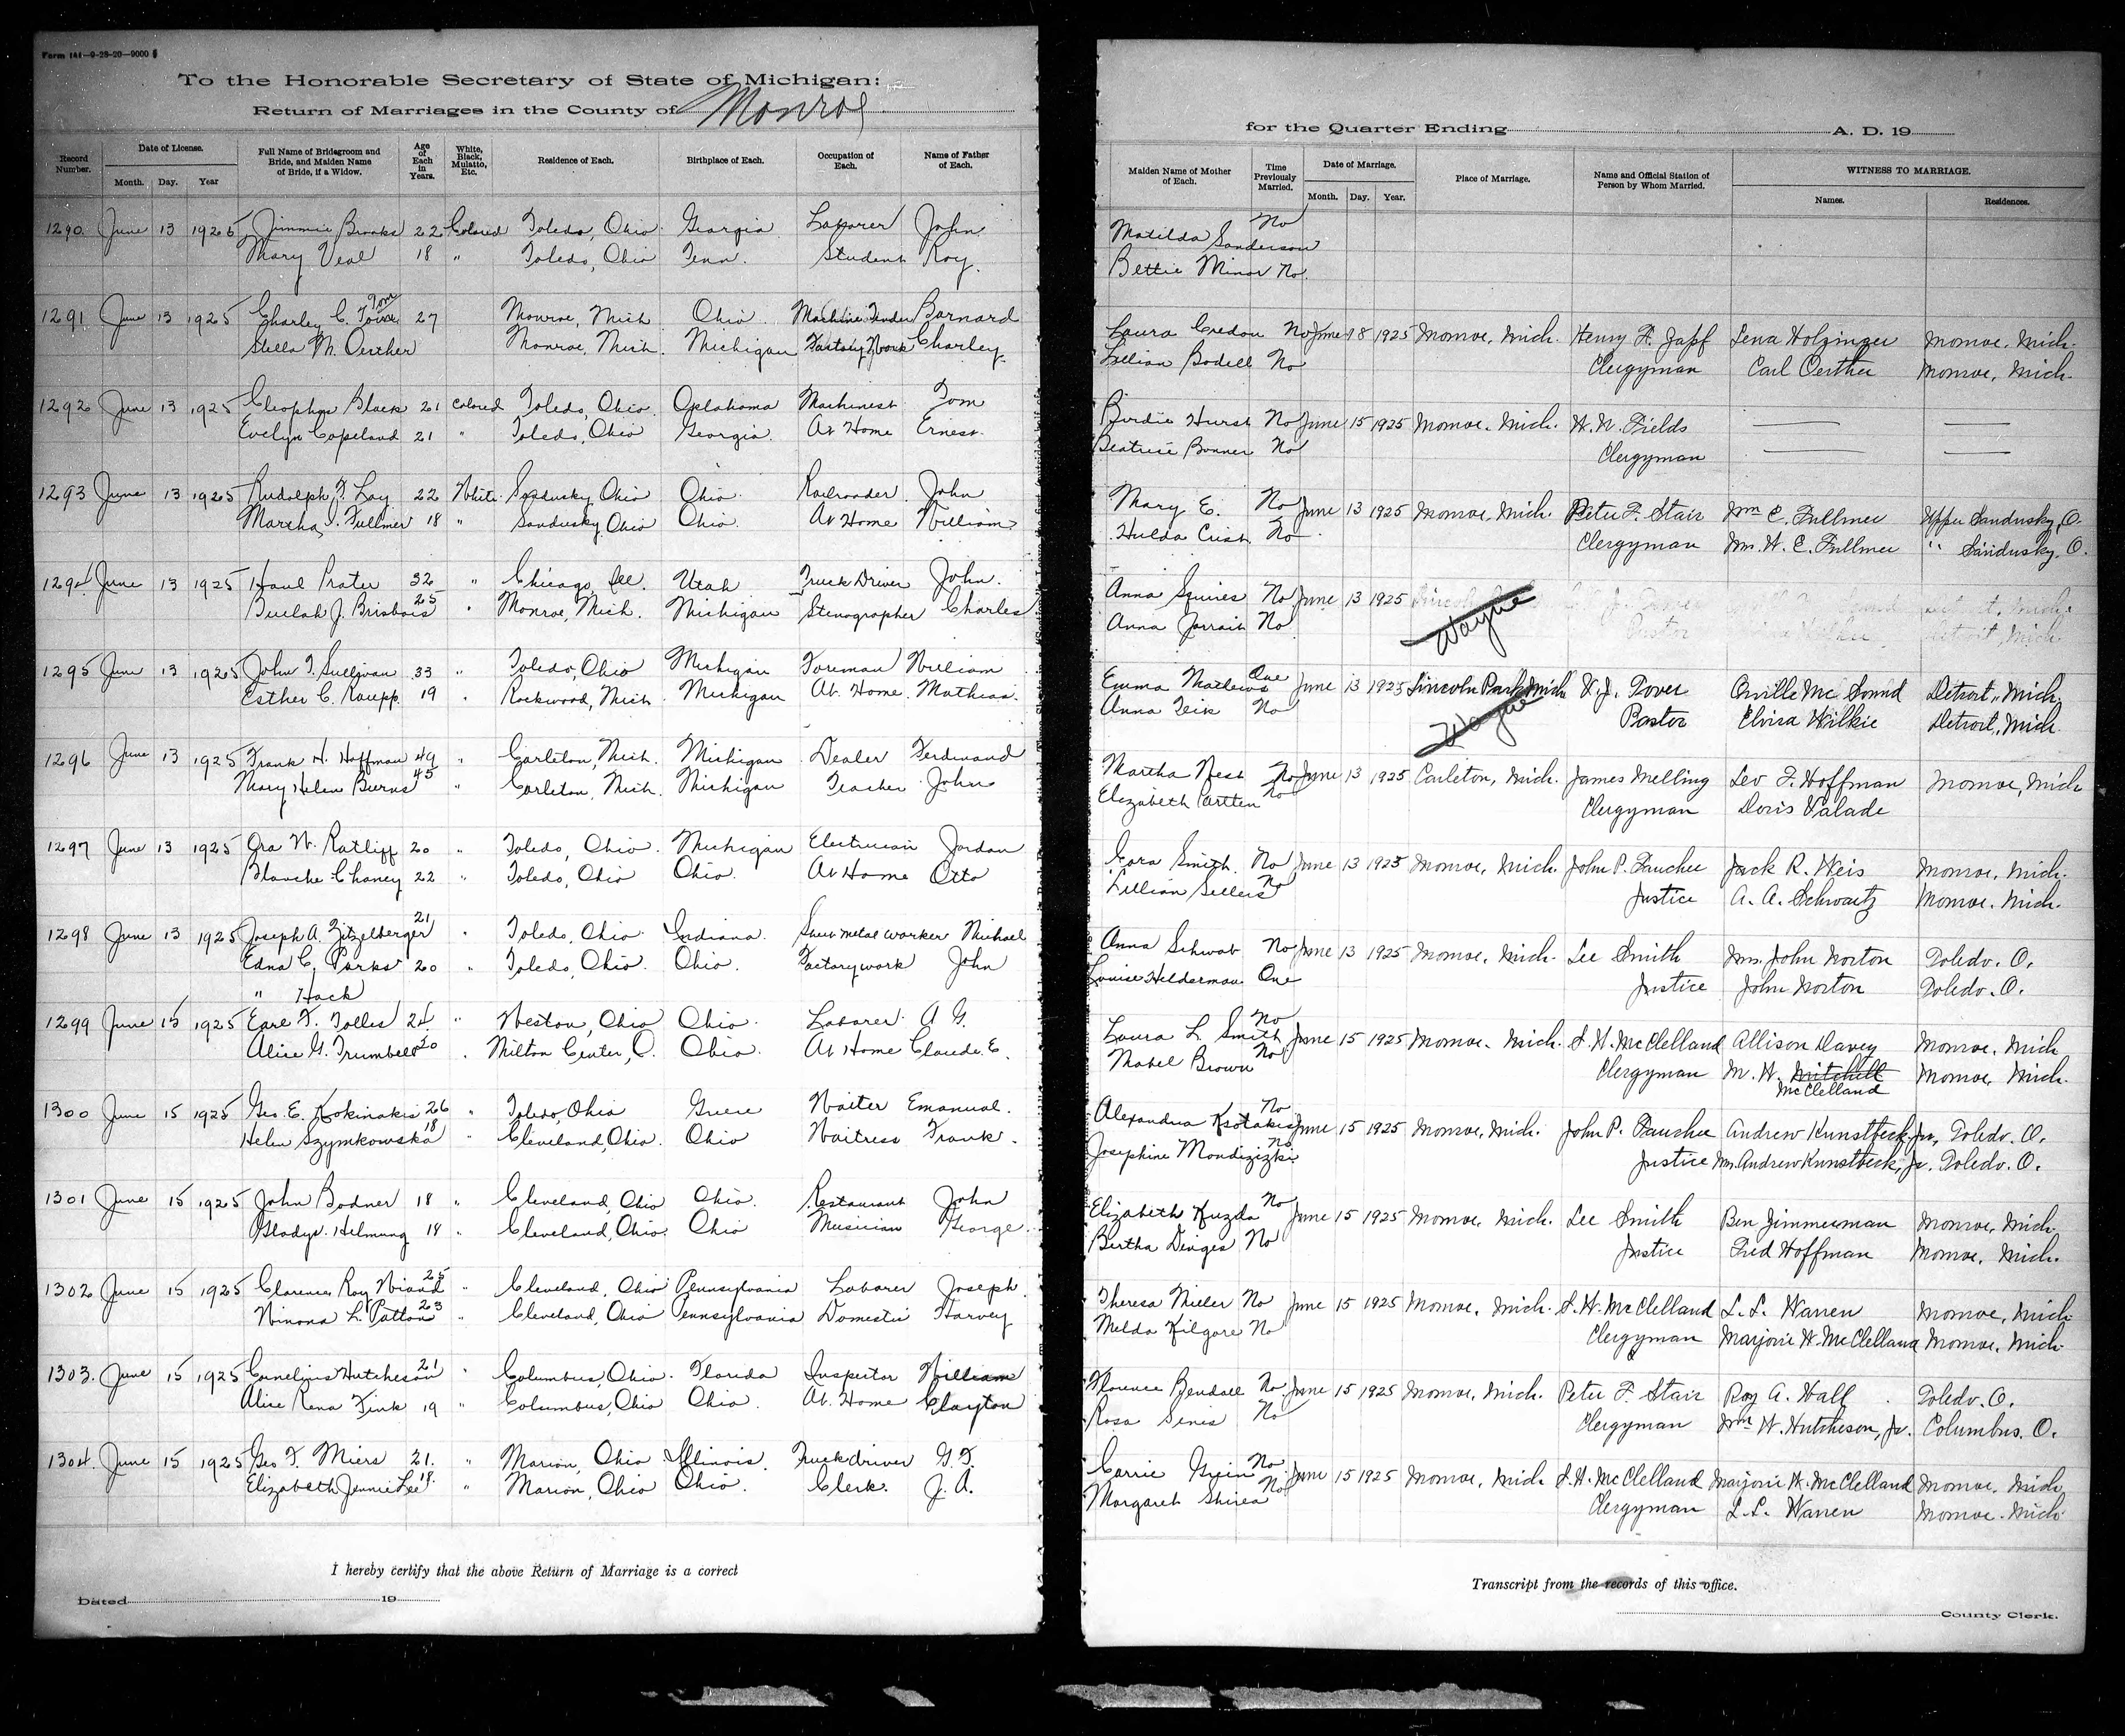 Form 141—9-28-20—9000
To the Honorable Secretary of State of Michigan:
Return of Marriages in the County of Monroe
Record Number. Date of License. Month. Day. Year Full Name of Bridegroom and Bride, and Maiden Name of Bride, if a Widow. Age of Each in Years. White, Black, Mulatto, Etc. Residence of Each. Birthplace of Each. Occupation of Each. Name of Father of Each.
1290 June 13 1925 Jimmie Brooks 22 Colored Toledo, Ohio Georgia Laborer John
Mary Veal 18 " Toledo, Ohio Tenn. Student Roy.
1291 June 13 1925 Charley C. 27 Monroe, Mich Ohio Machine Tender Barnard
Stella M. Oerther Monroe, Mich. Michigan Factory Work Charley.
1292 June 13 1925 Cleophus Black 21 Colored Toledo, Ohio Oklahoma Machinest Tom
Evelyn Copeland 21 " Toledo, Ohio Georgia. At Home Ernest.
1293 June 13 1925 Rudolph F. Loy 22 White Sandusky, Ohio Ohio. Railroader John
Martha J. Fullmer 18 " Sandusky, Ohio Ohio. At Home William
1294 June 13 1925 Prater 32 " Chicago, Ill. Utah Truck Driver John.
Beulah J. Brisbois 25 " Monroe, Mich. Michigan Stenographer Charles
1295 June 13 1925 John T. Sullivan 33 " Toledo, Ohio Michigan Foreman William
Esther C. Raupp. 19 " Rockwood, Mich. Michigan At Home. Mathias.
1296 June 13 1925 Frank H. Hoffman 49 " Carleton, Mich. Michigan Dealer Ferdinand
Mary Helen Burns 45 " Carleton, Mich. Michigan Teacher John
1297 June 13 1925 Ora W. Ratliff 20 " Toledo, Ohio. Michigan Electrician Jordan
Blanche Chaney 22 " Toledo, Ohio Ohio. At Home Otto
1298 June 13 1925 Joseph A. Zitzelberger 21 " Toledo, Ohio Indiana. Sheet metal worker Michael
Edna C. Parks 20 " Toledo, Ohio. Ohio. Factory work John
" Hack
1299 June 15 1925 Earl F. Tolles 24 " Weston, Ohio Ohio. Laborer A G.
Alice G. Trumbull 20 " Milton Center, O. Ohio. At Home Claude E.
1300 June 15 1925 Geo. E. Kokinakis 26 " Toledo, Ohio Greece Waiter Emanual.
Helen Szymkowska 18 " Cleveland, Ohio. Ohio Waitress Frank.
1301 June 15 1925 John Bodner 18 " Cleveland, Ohio Ohio. Restaurant John
Gladys Helmung 18 " Cleveland, Ohio. Ohio Musician George.
1302 June 15 1925 Clarence Roy Wiand 25 " Cleveland, Ohio Pennsylvania Laborer Joseph.
Winona L. Patton 23 " Cleveland, Ohio Pennsylvania Domestic Harvey
1303. June 15 1925 Cornelius Hutcheson 21 " Columbus, Ohio. Florida Inspector William
Alice Rena Fink 19 " Columbus, Ohio Ohio. At Home Clayton
1304. June 15 1925 Geo F. Miers 21. " Marion, Ohio Illinois. Truckdriver G. F.
Elizabeth Jennie Lee 18. " Marion, Ohio Ohio. Clerk. J. A.
I hereby certify that the above Return of Marriage is a correct
Dated 19
for the Quarter Ending A. D. 19
Maiden Name of Mother of Each. Time Previously Married. Date of Marriage. Month. Day. Year. Place of Marriage. Name and Official Station of Person by Whom Married. WITNESS TO MARRIAGE. Names. Residences.
Matilda Sanderson No
Bettie Minor No.
Laura Credon No June 18 1925 Monroe, Mich. Henry F. Japf Lena Holzinger Monroe, Mich.
Lillian Bodell No Clergyman Carl Oerther Monroe, Mich.
Birdie Hurst No June 15 1925 Monroe, Mich. H. N. Fields
Beatrice Bonner No Clergyman
Mary E. No June 13 1925 Monroe, Mich. Peter F. Stair Wm C. Fullmer Upper Sandusky, O.
Hulda Crist No Clergyman Mrs. W. C. Fullmer " Sandusky, O.
Anna Squires No June 13 1925 Wayne
Anna Jarrait No
Emma Mathews One June 13 1925 Lincoln Park Mich V. J. Tover Orville Mc Sound Detroit, Mich.
Anna Zeik No Wayne Pastor Elvira Wilkie Detroit, Mich.
Martha Nest No June 13 1925 Carleton, Mich. James Melling Leo F. Hoffman Monroe, Mich
Elizabeth Partten No Clergyman Doris Valade
Cora Smith No June 13 1925 Monroe, Mich. John P. Faucher Jack R. Weis Monroe, Mich.
Lillian Sellers No Justice A. A. Schwartz Monroe, Mich.
Anna Schwab No June 13 1925 Monroe, Mich. Lee Smith Mrs. John Norton Toledo. O.
Louise Helderman One Justice John Norton Toledo. O.
Laura L. Smith No June 15 1925 Monroe, Mich. S. H. McClelland Allison Davey Monroe, Mich
Mabel Brown No Clergyman M. H. Mitchell McClelland Monroe, Mich.
Alexandria Ksotakis No June 15 1925 Monroe, Mich. John P. Faucher Andrew Kunstbeck, Jr. Toledo. O.
Josephine Mondizizki No Justice Mrs. Andrew Kunstbeck, Jr. Toledo. O.
Elizabeth Kuzda No June 15 1925 Monroe, Mich. Lee Smith Ben Zimmerman Monroe, Mich.
Bertha Dinges No Justice Fred Hoffman Monroe, Mich.
Theresa Miller No June 15 1925 Monroe, Mich. S. H. McClelland L. L. Warren Monroe, Mich
Melda Kilgore No Clergyman Marjorie H. McClelland Monroe, Mich.
Florence Bendall No June 15 1925 Monroe, Mich. Peter F. Stair Roy A. Hall Toledo. O.
Rosa Sinis No Clergyman Wm W. Hutcheson, Jr. Columbus. O.
Carrie Green No June 15 1925 Monroe, Mich S. H. McClelland Marjorie H. McClelland Monroe, Mich.
Margaret Shirea No Clergyman L. L. Warren Monroe. Mich.
Transcript from the records of this office.
County Clerk.